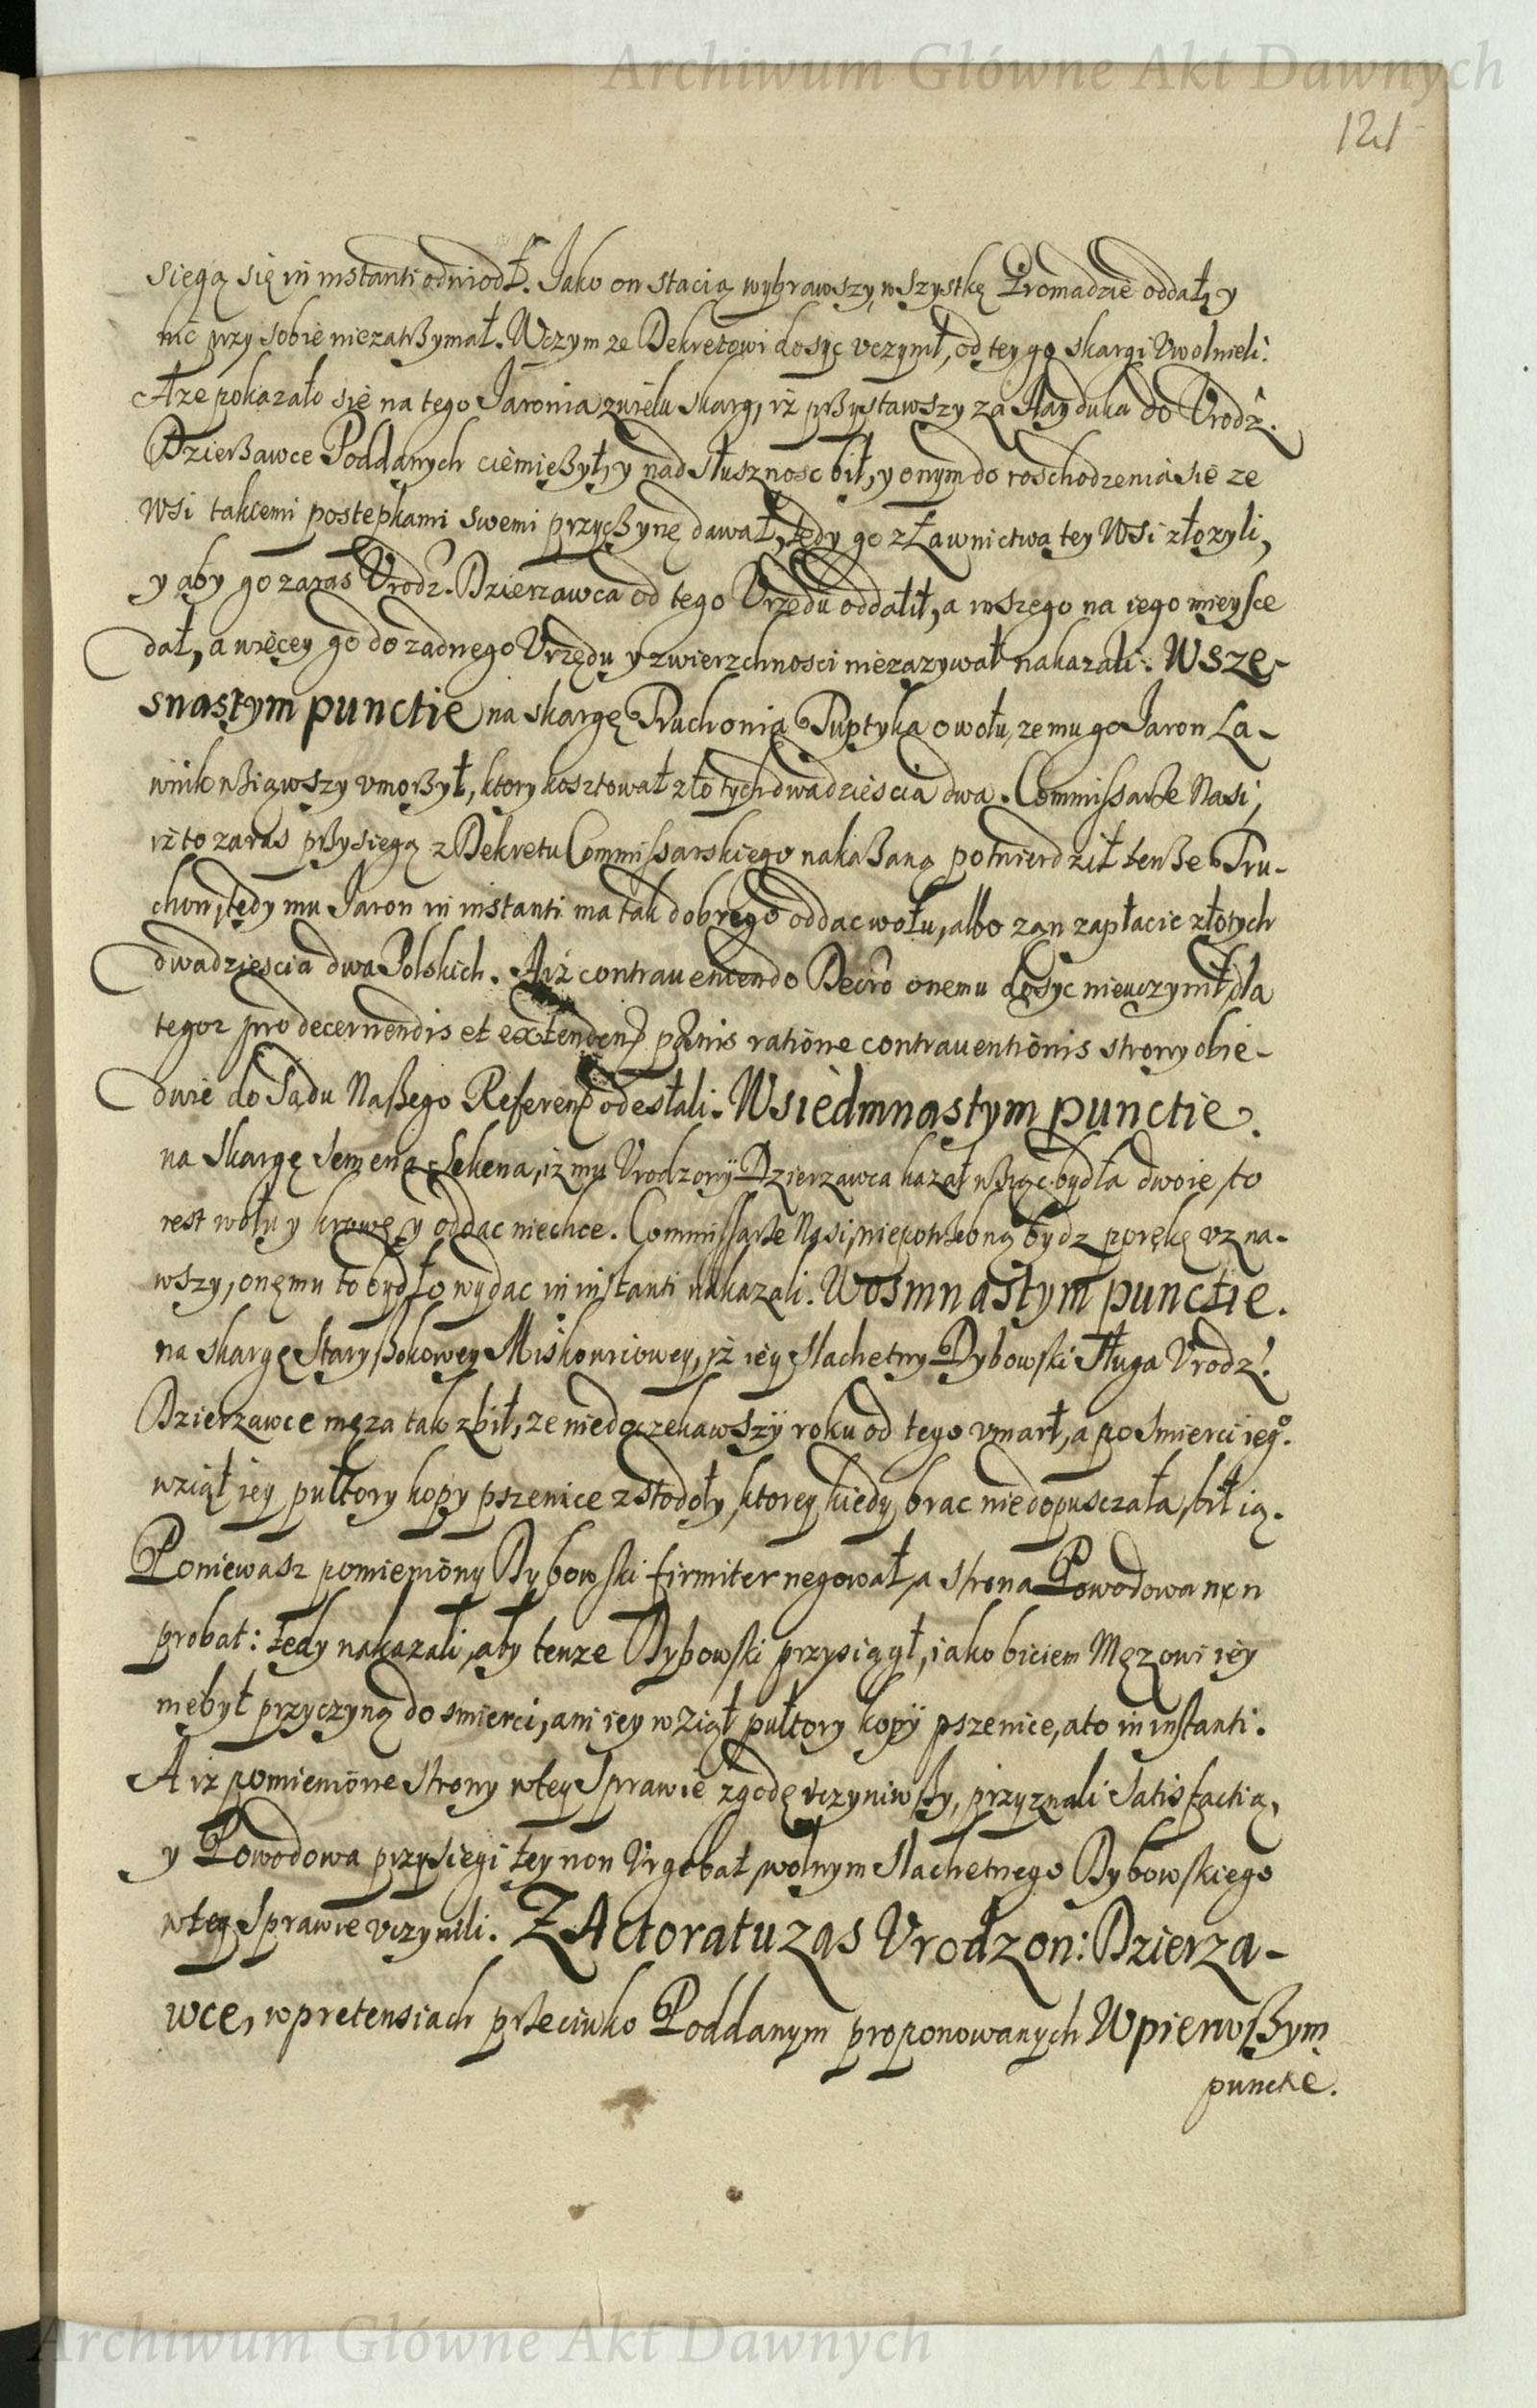 Archiwum Główne Akt Dawnych
121
sięgą się in instanti odwiodł. Jako on stacią wybrawszy, wszystkę Gromadzie oddał, y
nic przy sobie niezatrßymał. Wczym ze Dekretowi dosyc vczynił, od tey go skargi Vwolnieli.
Aże pokazało się na tego Jaronia zwielu skarg, iż prßystawszy za Hayduka do Vrodz.
Dzierßawce Poddanych ciemięßył, y nad słusznosc bił, y onym do roschodzenia sie ze
Wsi takiemi postepkami swemi przyczynę dawał, tedy go z Ławnictwa tey Wsi złozyli,
y aby go zaras Vrodz. Dzierzawca od tego Vrzędu oddalił, a inszego na iego mieysce
dał, a więcey go do zadnego Vrzędu y zwierzchnosci niezazywał nakazali. Wsze-
snastym punctie na skargę Truchonia Tuptyka o wołu, ze mu go Jaron La-
wnik wßiąwszy vmorßył, ktory kosztował złotych dwadziescia dwa. Commissarze Nasi,
iż to zaras prßysięgą z Dekretu Commissarskiego nakaßaną potwierdził tenße Tru-
chon, tedy mu Jaron in instanti ma tak dobrego oddac wołu, albo zan zapłacic złotych
dwadziescia dwa Polskich. Aiż contraueniendo Decro onemu dosyc nieuczynił, dla
tegoz pro decernendis et extenden pænis ratione contrauentionis strony obie-
dwie do Sądu Naßego Referen odesłali. Wsiedmnastym punctie.
na skargę Semena Sekena, iz mu Vrodzony Dzierzawca kazał wßiąc bydła dwoie, to
iest wołu y krowę, y oddac niechce. Commissarze Nasi, niepotrzebną bydz porękę vzna-
wszy, onemu to bydło wydac in instanti nakazali. Wosmnastym punctie.
na skargę Staryßokowey Miskowiowey, iż iey Slachetny Dybowski Sługa Vrodz.
Dzierzawce męza tak zbił, ze niedoczekawszy roku od tego vmarł, a po smierci ieg°.
wziął iey pułtory kopy pszenice z stodoły, ktorey kiedy brac niedopusczała, bił ią.
Poniewasz pomieniony Dybowski firmiter negował, a strona Powodowa non
probat: tedy nakazali, aby tenze Dybowski przysiągł, iako biciem Męzowi iey
niebył przyczyną do smierci, ani iey wziął pułtory kopy pszenice, a to in instanti.
A iz pomienione strony wtey Sprawie zgodę vczyniwßy, przyznali Satisfactią,
y Powodowa przysięgi tey non Vrgebat, wolnym Slachetnego Dybowskiego
wtey Sprawie vczynili. Z Actoratu zas Vrodzon: Dzierza-
wce, w pretensiach przeciwko Poddanym proponowanych Wpierwßym
punctie.
Archiwum Główne Akt Dawnych